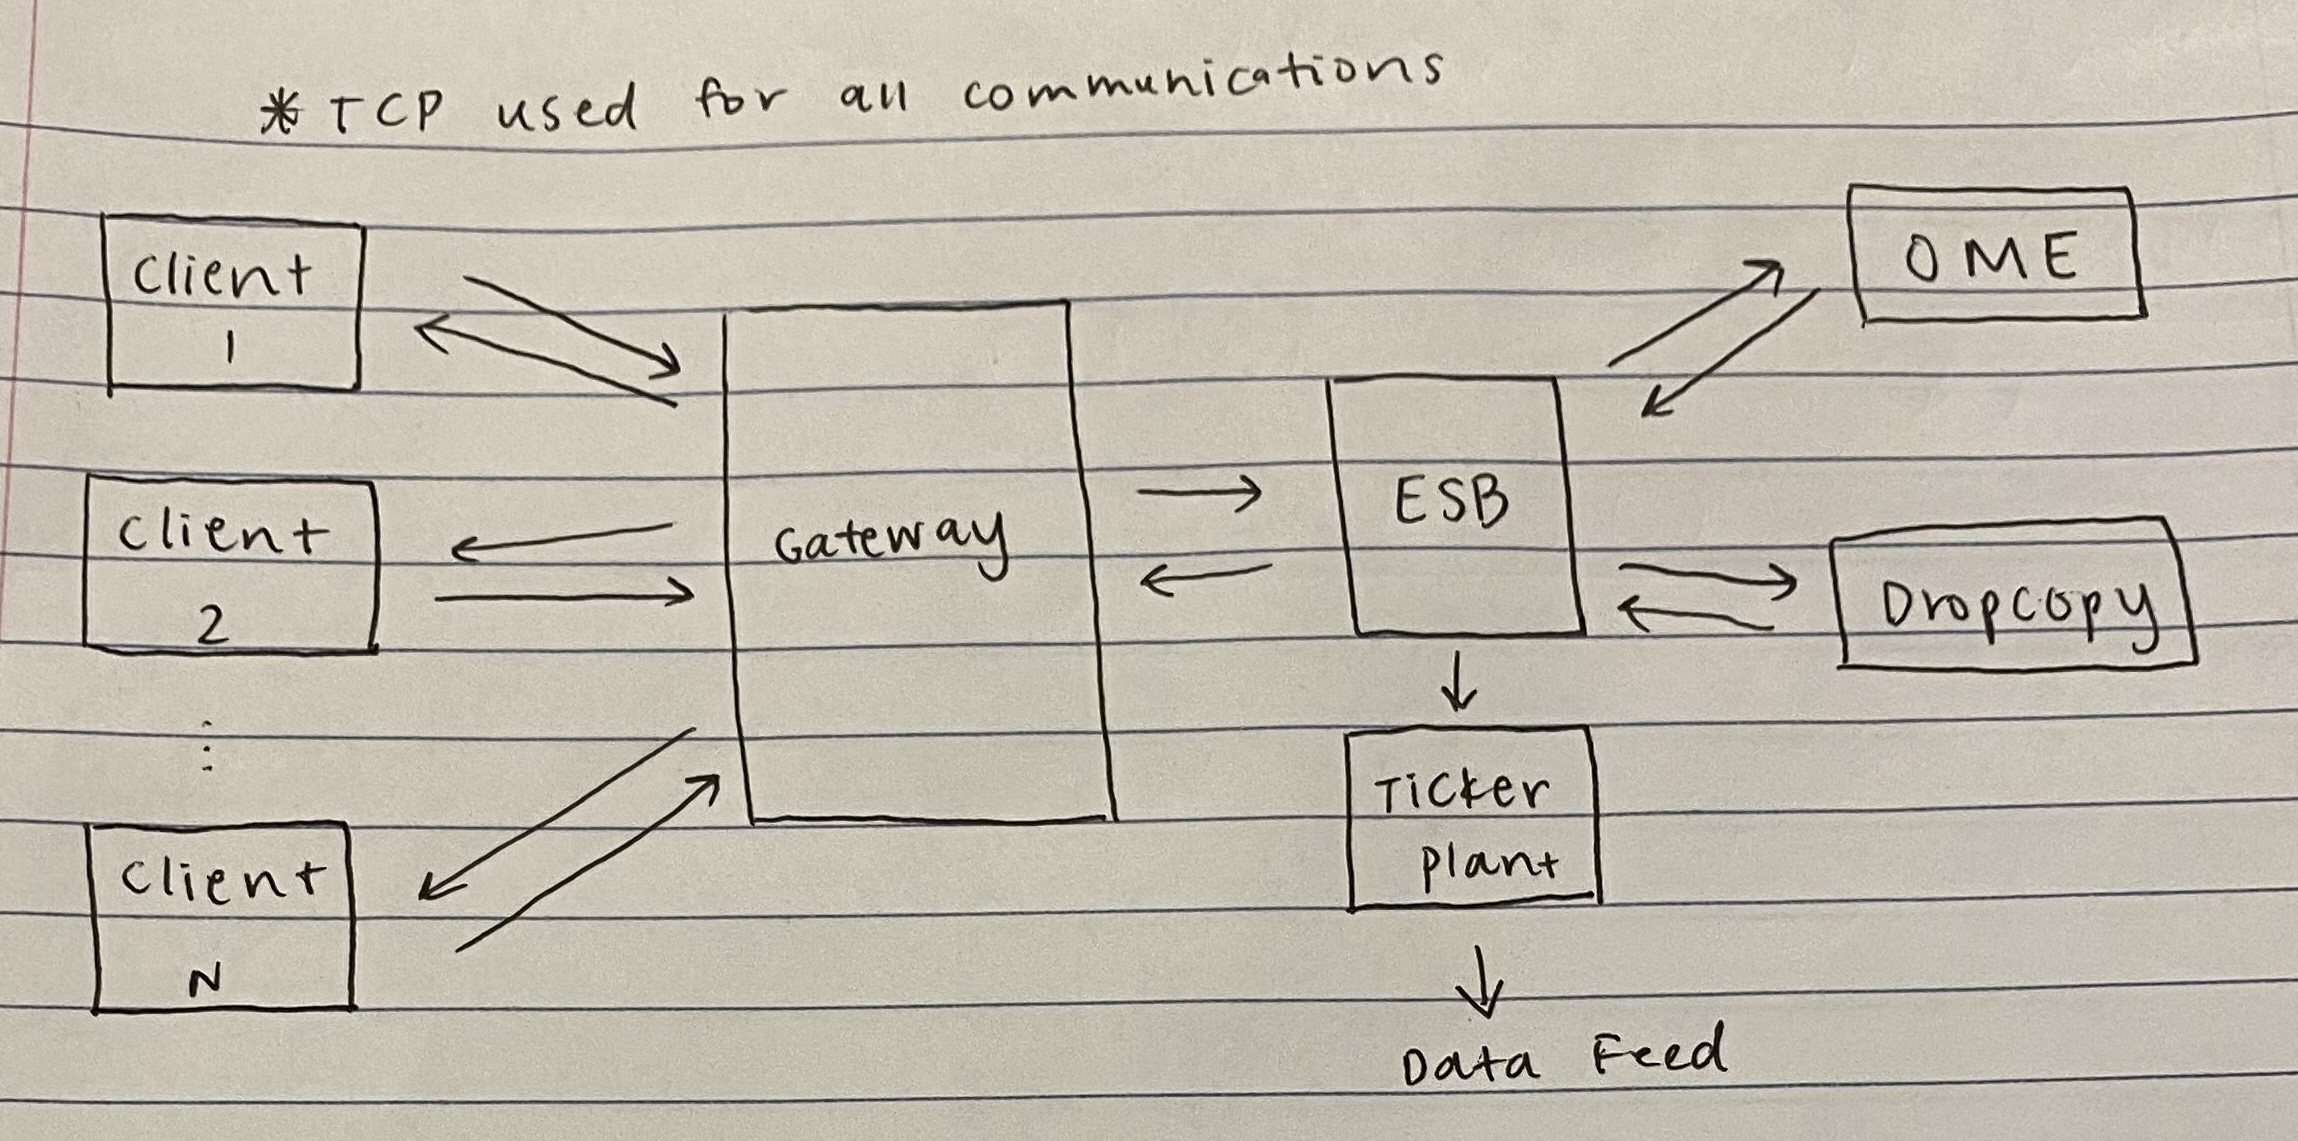 * TCP used for all communications
Client
1
OME
Client
2
Gateway
ESB
Dropcopy
⋮
Client
N
Ticker
plant
Data Feed